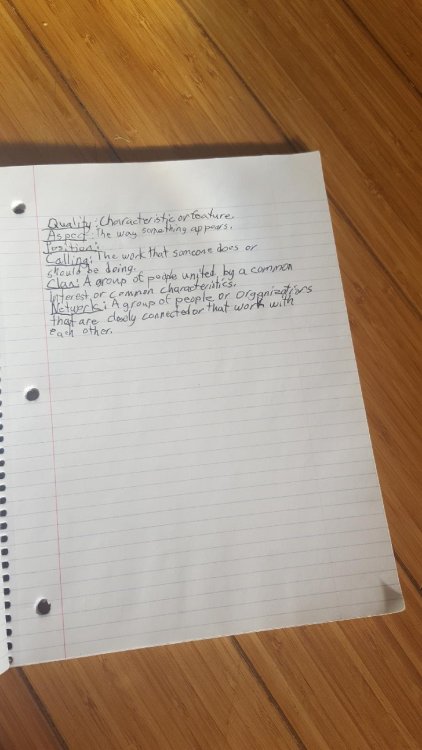 Quality: Characteristic or feature.
Aspect: The way something appears.
Position:
Calling: The work that someone does or
should be doing.
Clan: A group of people united by a common
interest or common characteristics.
Network: A group of people or organizations
that are closely connected or that work with
each other.